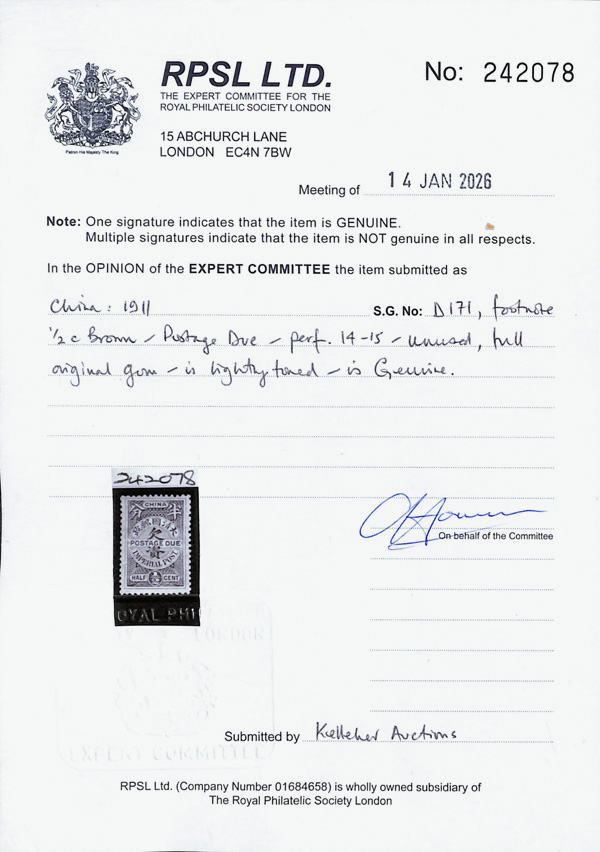 RPSL LTD.
THE EXPERT COMMITTEE FOR THE
ROYAL PHILATELIC SOCIETY LONDON
No: 242078
Patron His Majesty The King
15 ABCHURCH LANE
LONDON EC4N 7BW
Meeting of 14 JAN 2026
Note: One signature indicates that the item is GENUINE.
Multiple signatures indicate that the item is NOT genuine in all respects.
In the OPINION of the EXPERT COMMITTEE the item submitted as
China: 1911 S.G. No: D171, footnote
½ c Brown - Postage Due - perf. 14-15 - unused, full
original gum - is lightly toned - is Genuine.
242078
CHINA
欠
POSTAGE DUE
資
IMPERIAL POST
HALF CENT
OYAL PHI
On behalf of the Committee
LONDON
EXPERT COMMITTEE
Submitted by Kelleher Auctions
RPSL Ltd. (Company Number 01684658) is wholly owned subsidiary of
The Royal Philatelic Society London